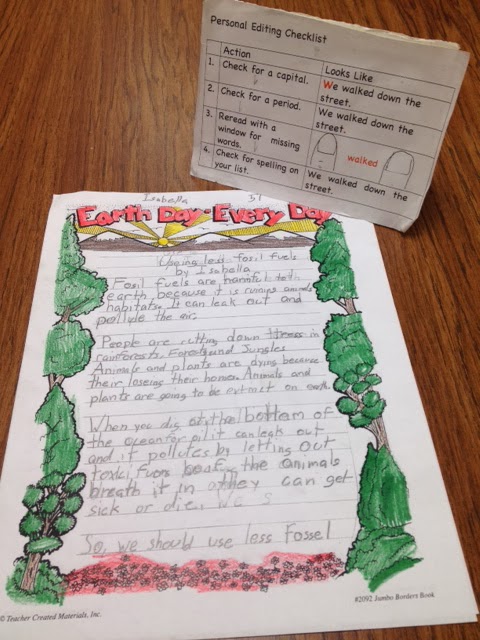 Personal Editing Checklist
Action
Looks Like
1. Check for a capital.
We walked down the street.
2. Check for a period.
We walked down the street.
3. Reread with a window for missing words.
walked
4. Check for spelling on your list.
We walked down the street.
Isabella
Earth Day - Every Day
Useing less fosil fuels
by Isabella
Fosil fuels are harmful
earth because it is animals
habitats. It can leak out and
the air.
People are cutting down in
rainforests. Forests and Jungles
Animals and plants are dying because
their loseing their home. Animals and
plants are going to be extinct on earth.
When you dig at the bottom of
the ocean for oil it can leak out
and it pollutes by letting out
the animals
breath it in they can get
sick or die. We s
So, we should use less Fossel
© Teacher Created Materials, Inc.
#2092 Jumbo Borders Book